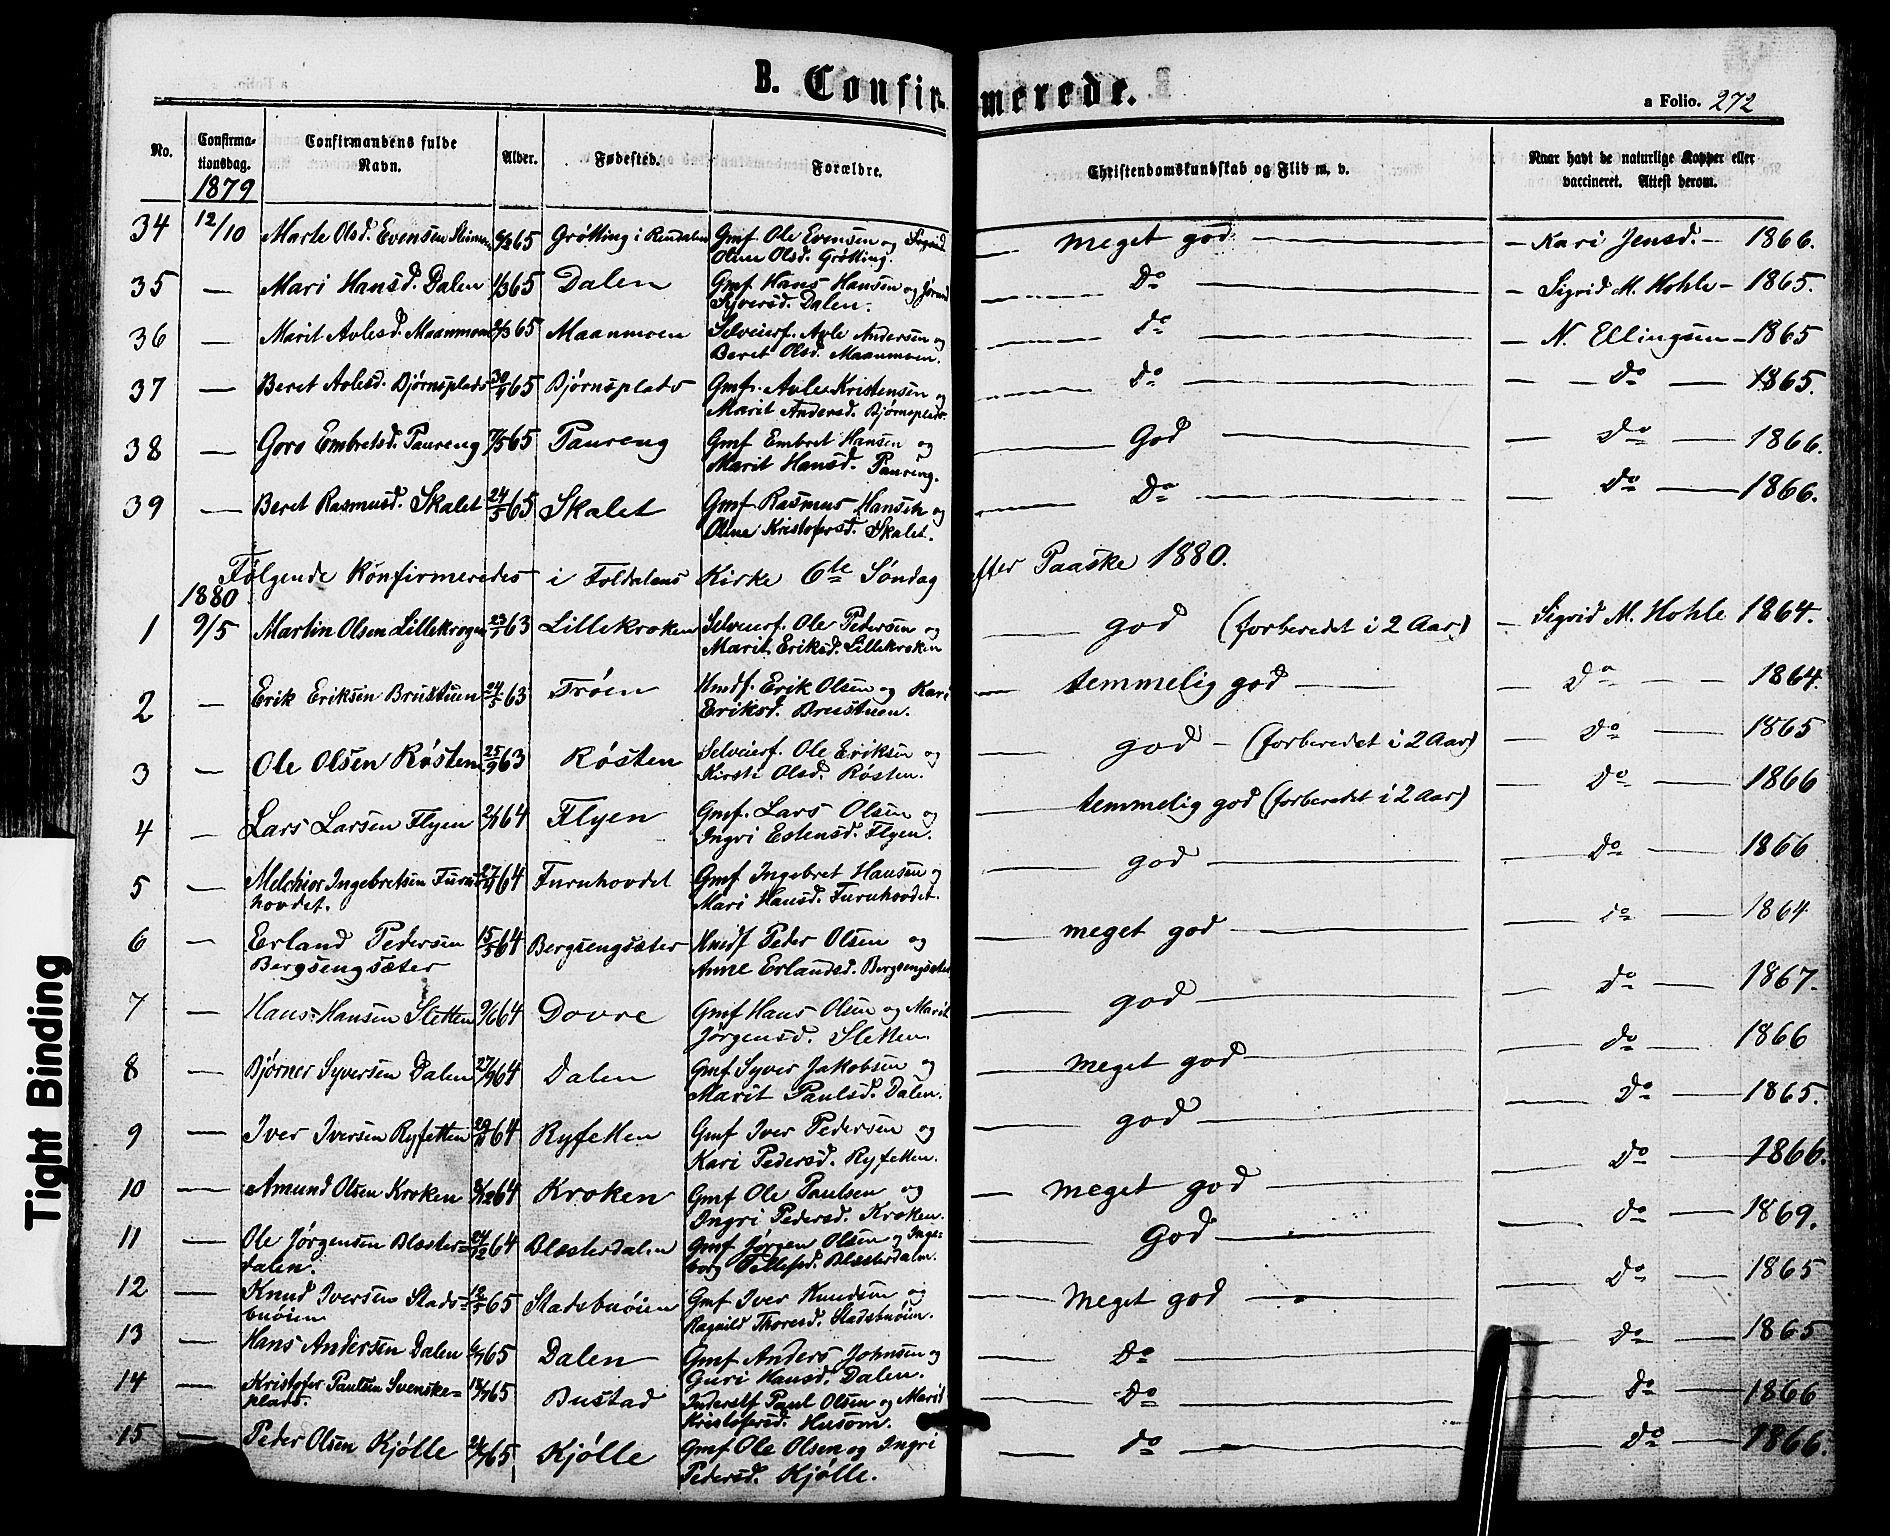 B. Confirmerede.
a Folio. 272
No. Confirmationsdag. Confirmandens fulde Navn. Alder. Fødested. Forældre. Christendomskundskab og Flid m. v. Naar havt de naturlige Kopper eller vaccineret. Attest derom.
1879
34 12/10 Marte Olsd. Evensen 65 Grøtting i Rendalen Gmf Ole Evensen og Sigrid — meget god — Kari Jensd. — 1866.
Olsd. Grøtting.
35 — Mari Hansd. Dalen 1/3 65 Dalen Gmf Hans Hansen og Jørand — Do — Sigrid M. Hohle — 1865.
Syversd. Dalen.
36 — Marit Avlesd. Maanmoen 65 Maanmoen Selveierf. Avle Andersen og — do — N. Ellingsen — 1865
Beret Olsd. Maanmoen.
37 — Beret Avlesd. Bjørnsplads 65 Bjørnsplads Gmf. Avle Kristensen og — do — do — 1865.
Marit Andersd. Bjørnsplads.
38 — Goro Embretsd. Paureng 7/5 65 Paureng Gmf Embret Hansen og — God — do — 1866.
Marit Hansd. Paureng.
39 — Beret Rasmusd. Skalet 24/5 65 Skalet Gmf Rasmus Hansen og — Do — do — 1866.
Oline Kristofersd. Skalet.
Følgende Konfirmeredes i Foldalens Kirke 6te Søndag efter Paaske 1880.
1880
1 9/5 Martin Olsen Lillekrogen 63 Lillekroken Selveierf. Ole Pedersen og — god (forberedet i 2 Aar) — Sigrid M. Hohle 1864.
Marit Eriksd. Lillekroken
2 — Erik Eriksen Brustuen 24/5 63 Trøen Hmdf. Erik Olsen og Kari — temmelig god — Do — 1864.
Eriksd. Brustuen.
3 — Ole Olsen Røsten 25/9 63 Røsten Selveierf. Ole Eriksen og — god — (forberedet i 2 Aar) — Do — 1865
Kirsti Olsd. Røsten.
4 — Lars Larsen Flyen 2/1 64 Flyen Gmf. Lars Olsen og — temmelig god (forberedet i 2 Aar) Do — 1866
Ingri Estensd. Flyen.
5 — Melchior Ingebretsen Furuhovdet. 64 Furuhovdet Gmf Ingebret Hansen og — god — do — 1866
Mari Hansd. Furuhovdet.
6 — Erland Pedersen 15/5 64 Bergsengsæter Hmdf Peder Olsen og — meget god — do — 1864
Bergsengsæter Anne Erlandsd. Bergsengsæter
7 — Hans Hansen Sletten 9/6 64 Dovre Gmf Hans Olsen og Marit — god — do — 1867.
Jørgensd. Sletten.
8 — Bjørner Syversen Dalen 64 Dalen Gmf Syver Jakobsen og — meget god — do — 1866
Marit Paulsd. Dalen.
9 — Iver Iversen Ryfetten 64 Ryfetten Gmf Iver Pedersen og — god — Do — 1865.
Kari Pedersd. Ryfetten.
10 — Amund Olsen Kroken 64 Kroken Gmf Ole Paulsen og — meget god — do — 1866.
Ingri Pedersd. Kroken.
11 — Ole Jørgensen Blæsterdalen. 24/12 64 Blæsterdalen Gmf Jørgen Olsen og Ingeborg — God — do — 1869.
Tellefsd. Blæsterdalen.
12 — Knud Iversen Stadsbuøien 65 Stadsbuøien Gmf Iver Knudsen og — Meget god — do — 1865
Ragnild Thoresd. Stadsbuøien.
13 — Hans Andersen Dalen 65 Dalen Gmf Anders Johnsen og — Do — do — 1865
Guri Hansd. Dalen.
14 — Kristofer Paulsen Svenskeplads. 65 Bustad Inderstf Paul Olsen og Marit — Do — do — 1866
Kristofersd. Husom.
15 — Peder Olsen Kjølle 65 Kjølle Gmf Ole Olsen og Ingri — do — do — 1866.
Pedersd. Kjølle.
Tight Binding